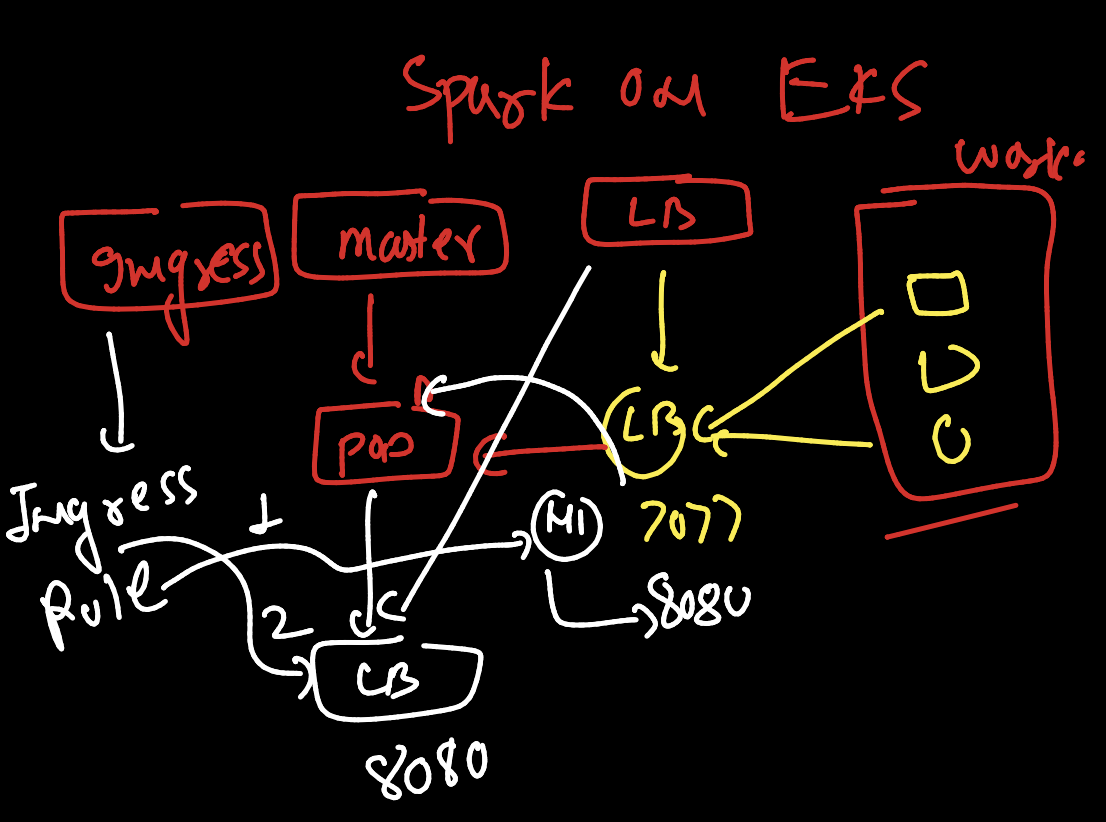 Spark on EKS
work
Ingress
master
LB
pod
LB
Ingress
Rule
1
M1
7077
2
8080
LB
8080